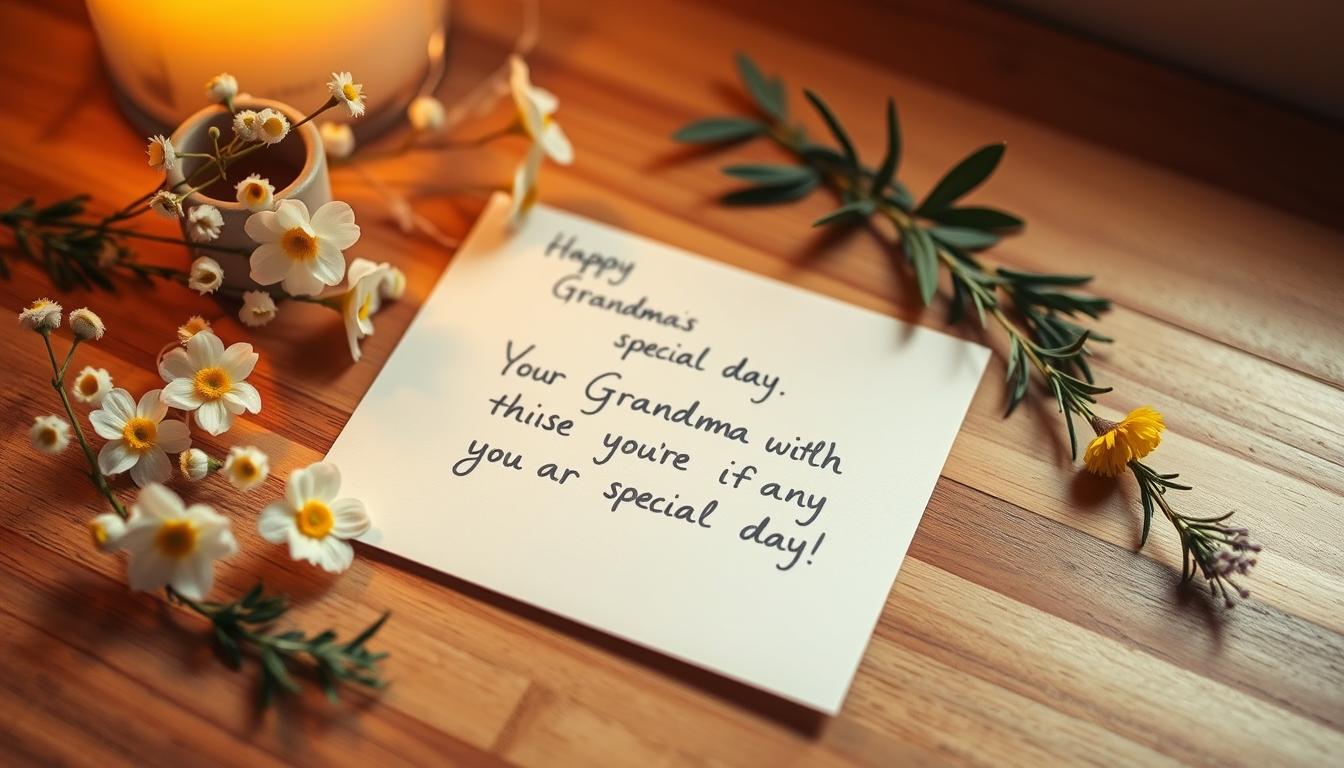 Happy
Grandma's
special day.
Your Grandma with
thiise you're if any
you ar special day!